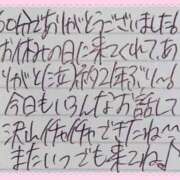 60分でありがとうございました!
お休みの日に来てくれてあ
りがと泣 約2年ぶり〜!
今日もいろんなお話して
沢山イチャイチャできたね〜
またいつでも来てね♪